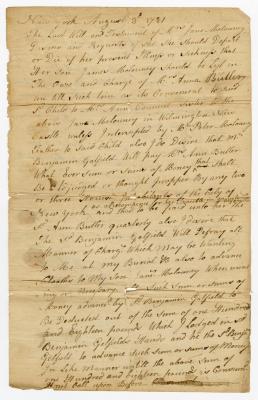 New York August 3d 1781
The Last Will and Testament of Mrs Jane Moloney
Desires and Requests if She Should Depart
or Die of her present Illness or Sickness that
Her Son James Moloney Should be Left in
The Care and Charge of Mrs Anna Butler
un till Such time as its Convenient to send
Sd Child to Mrs Ann Connel Sister to the
above Jane Moloney in Wilmington New
Castle unless Intercepted by Mr Peter Moloney
Father to Said Child also I do Desire that Mr
Benjamin Gatfield Will pay Mrs Ann Butler
What Ever Sum or Sums of Money that Shall
Be Adjudged or thought propper By any two
or three of the City of
New York and that to be paid unto
Ann Butler quarterly also I desire that
The Sd Benjamin Gatfield Will Defray all
Manner of Charge Which May be Wanting
to Me at my Burial & also to advance
Cloaths to My Son James Moloney When want
ing or Necessary Such Sum or Sums of
Money advanced by Sd Benjamin Gatfield to
Be Deducted out of the Sum of one Hundred
and Eighteen pounds Which I Lodged in Sd
Benjamin Gatfields Hands and he the Sd Benjn
Gatfield to advance such Sum or Sums of Money
In Like Manner until the above Sum of
one Hundred and Eighteen pounds is Consum
Before